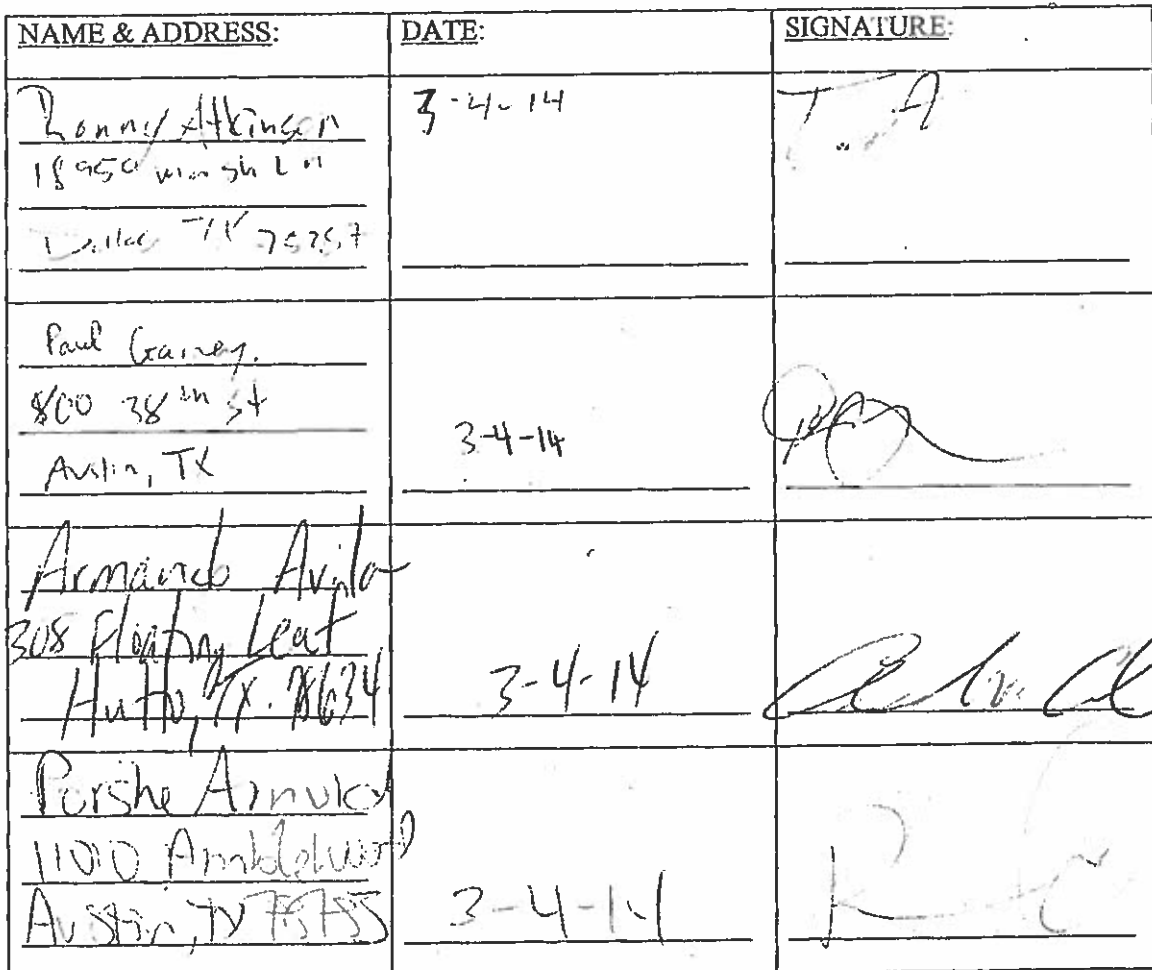 NAME & ADDRESS: DATE: SIGNATURE:
Ronny Atkinson 3-4-14
18950 Marsh Ln
Dallas TX
Paul Gainey.
800 38th St
Austin, TX 3-4-14
Armando Avila
308 Floating Leaf
Hutto, TX. 78634 3-4-14
Porshe
11010
Austin, TX 3-4-14